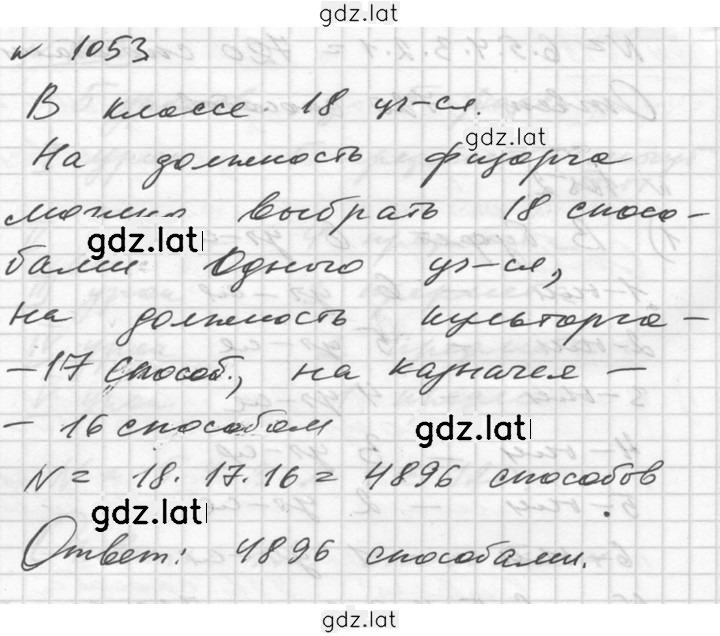 gdz.lat
№ 1053
В классе 18 уч-ся.
gdz.lat
На должность физорга
можно выбрать 18 спосо-
gdz.lat
бами одного уч-ся,
на должность культорга -
- 17 способ., на казначея -
- 16 способам
gdz.lat
N = 18. 17. 16 = 4896 способов
gdz.lat
Ответ: 4896 способами.
gdz.lat